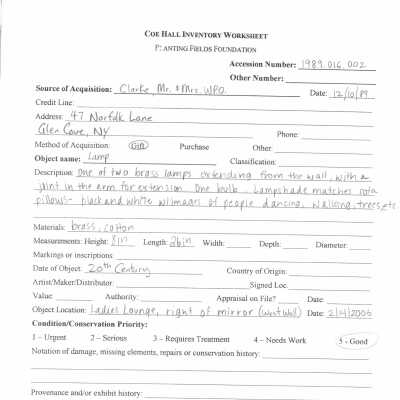 COE HALL INVENTORY WORKSHEET
PLANTING FIELDS FOUNDATION
Accession Number: 1989.016.002
Other Number:
Source of Acquisition: Clarke, Mr. & Mrs WPO Date: 12/10/89
Credit Line:
Address: 47 Norfolk Lane
Glen Cove, NY Phone:
Method of Acquisition: Gift Purchase Other:
Object name: Lamp Classification:
Description: One of two brass lamps extending from the wall, with a
joint in the arm for extension. One bulb. Lampshade matches sofa
pillows - black and white images of people dancing, walking, trees, etc
Materials: brass, cotton
Measurements: Height: 8in Length: 26in Width: Depth: Diameter:
Markings or inscriptions:
Date of Object: 20th Century Country of Origin:
Artist/Maker/Distributor: Signed Loc:
Value: Authority: Appraisal on File? Date:
Object Location: Ladies Lounge, right of mirror (West Wall) Date: 2/14/2006
Condition/Conservation Priority:
1 – Urgent 2 – Serious 3 – Requires Treatment 4 – Needs Work 5 - Good
Notation of damage, missing elements, repairs or conservation history:
Provenance and/or exhibit history: